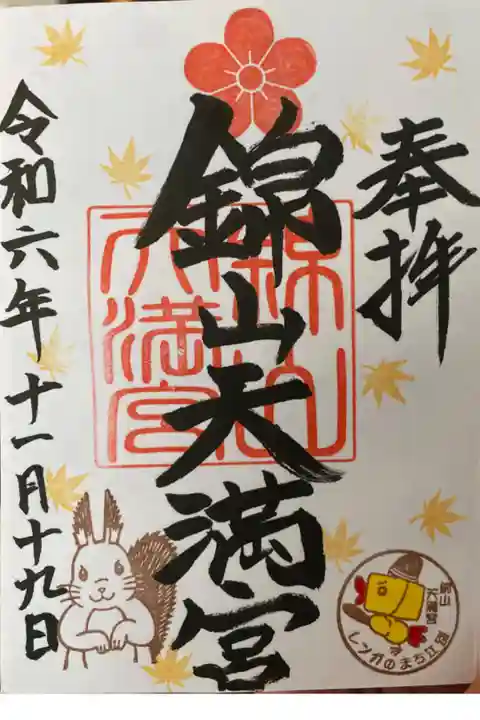 奉拝
錦山天満宮
錦山
天満宮
令和六年十一月十九日
錦山
天満宮
レンガのまち江別